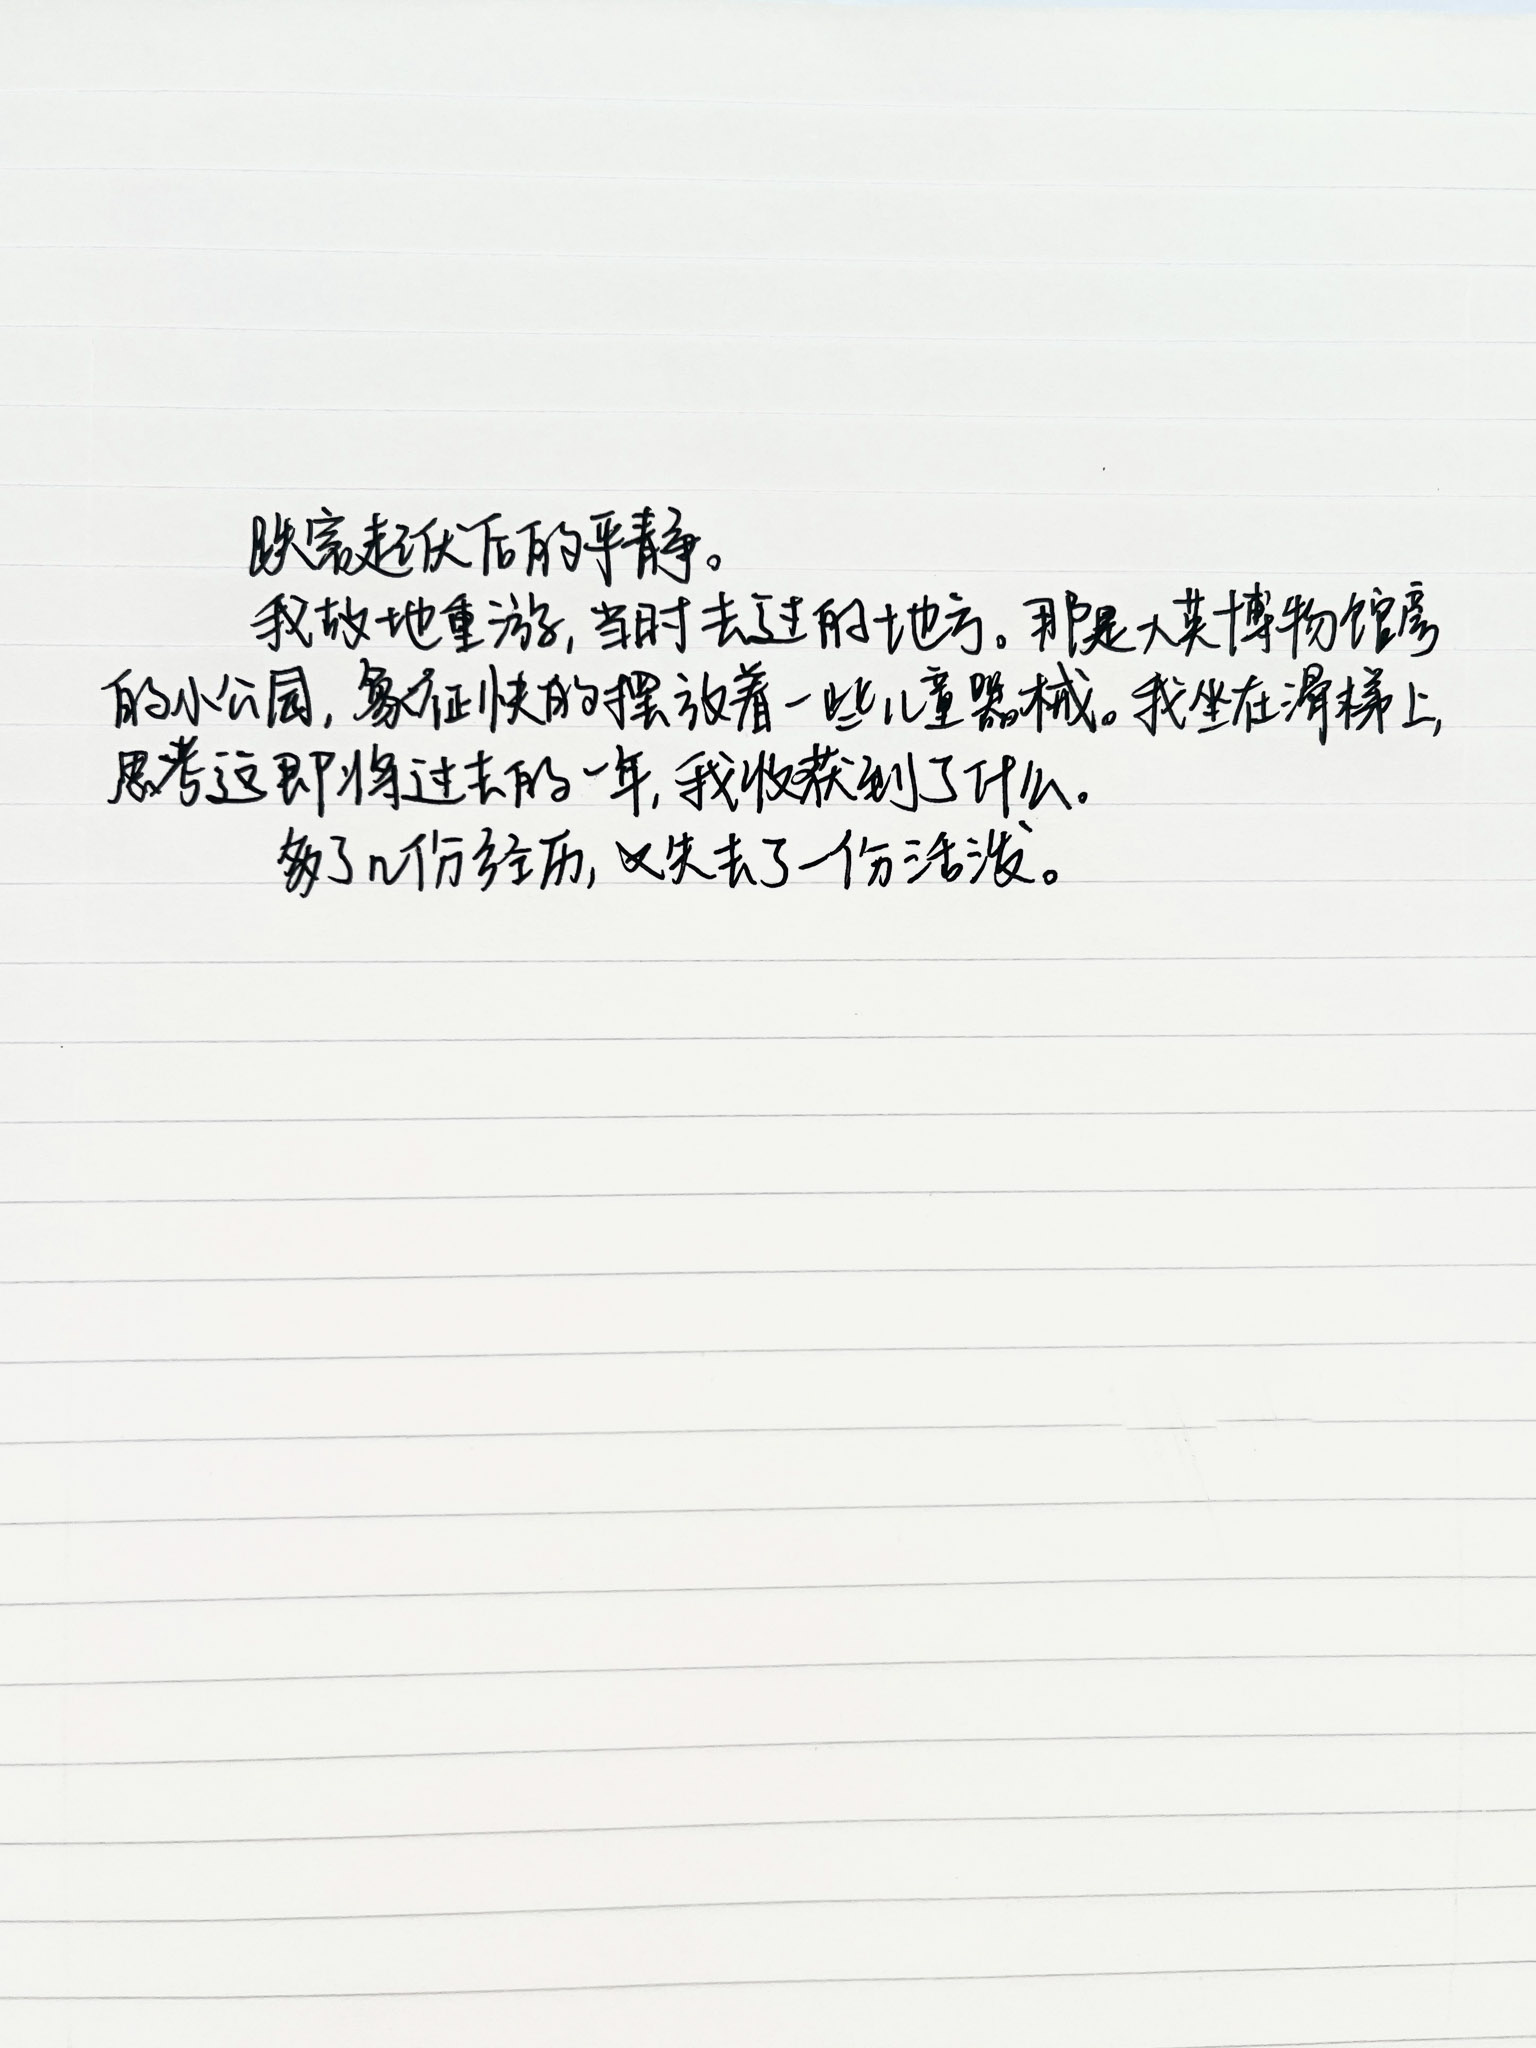 跌宕起伏后的平静。
我故地重游,当时去过的地方。那是大英博物馆旁
的小公园,象征快的摆放着一些儿童器械。我坐在滑梯上,
思考这即将过去的一年,我收获到了什么.
多了几份经历,又失去了一份活泼。